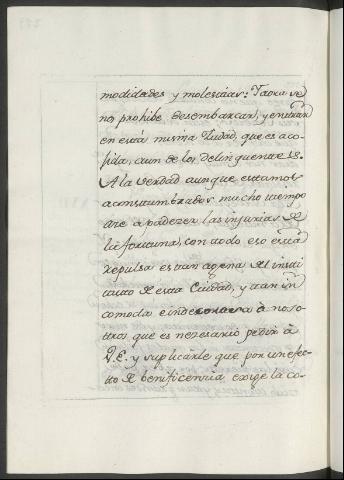 modidades y molestias: Taora se
nos prohibe desembarcar, y entrar
en esta misma Ciudad, que es aco-
jida, aun de los delinquentes.
A la verdad aunque estamos
acostumbrados mucho tiempo
ace a padezer las injurias de
la fortuna, con todo eso esta
repulsa es tan agena del insti
tuto de esta Ciudad, y tan in
comoda e indecorosa à noso-
tros, que es nezesario pedir à
V.E. y suplicarle que por un efec-
to de benificenzia exige la co-